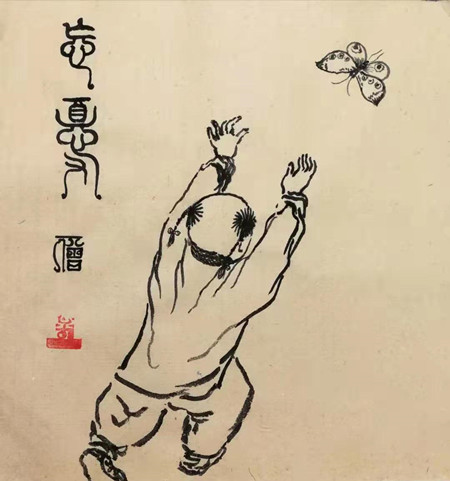 忘憂
僧